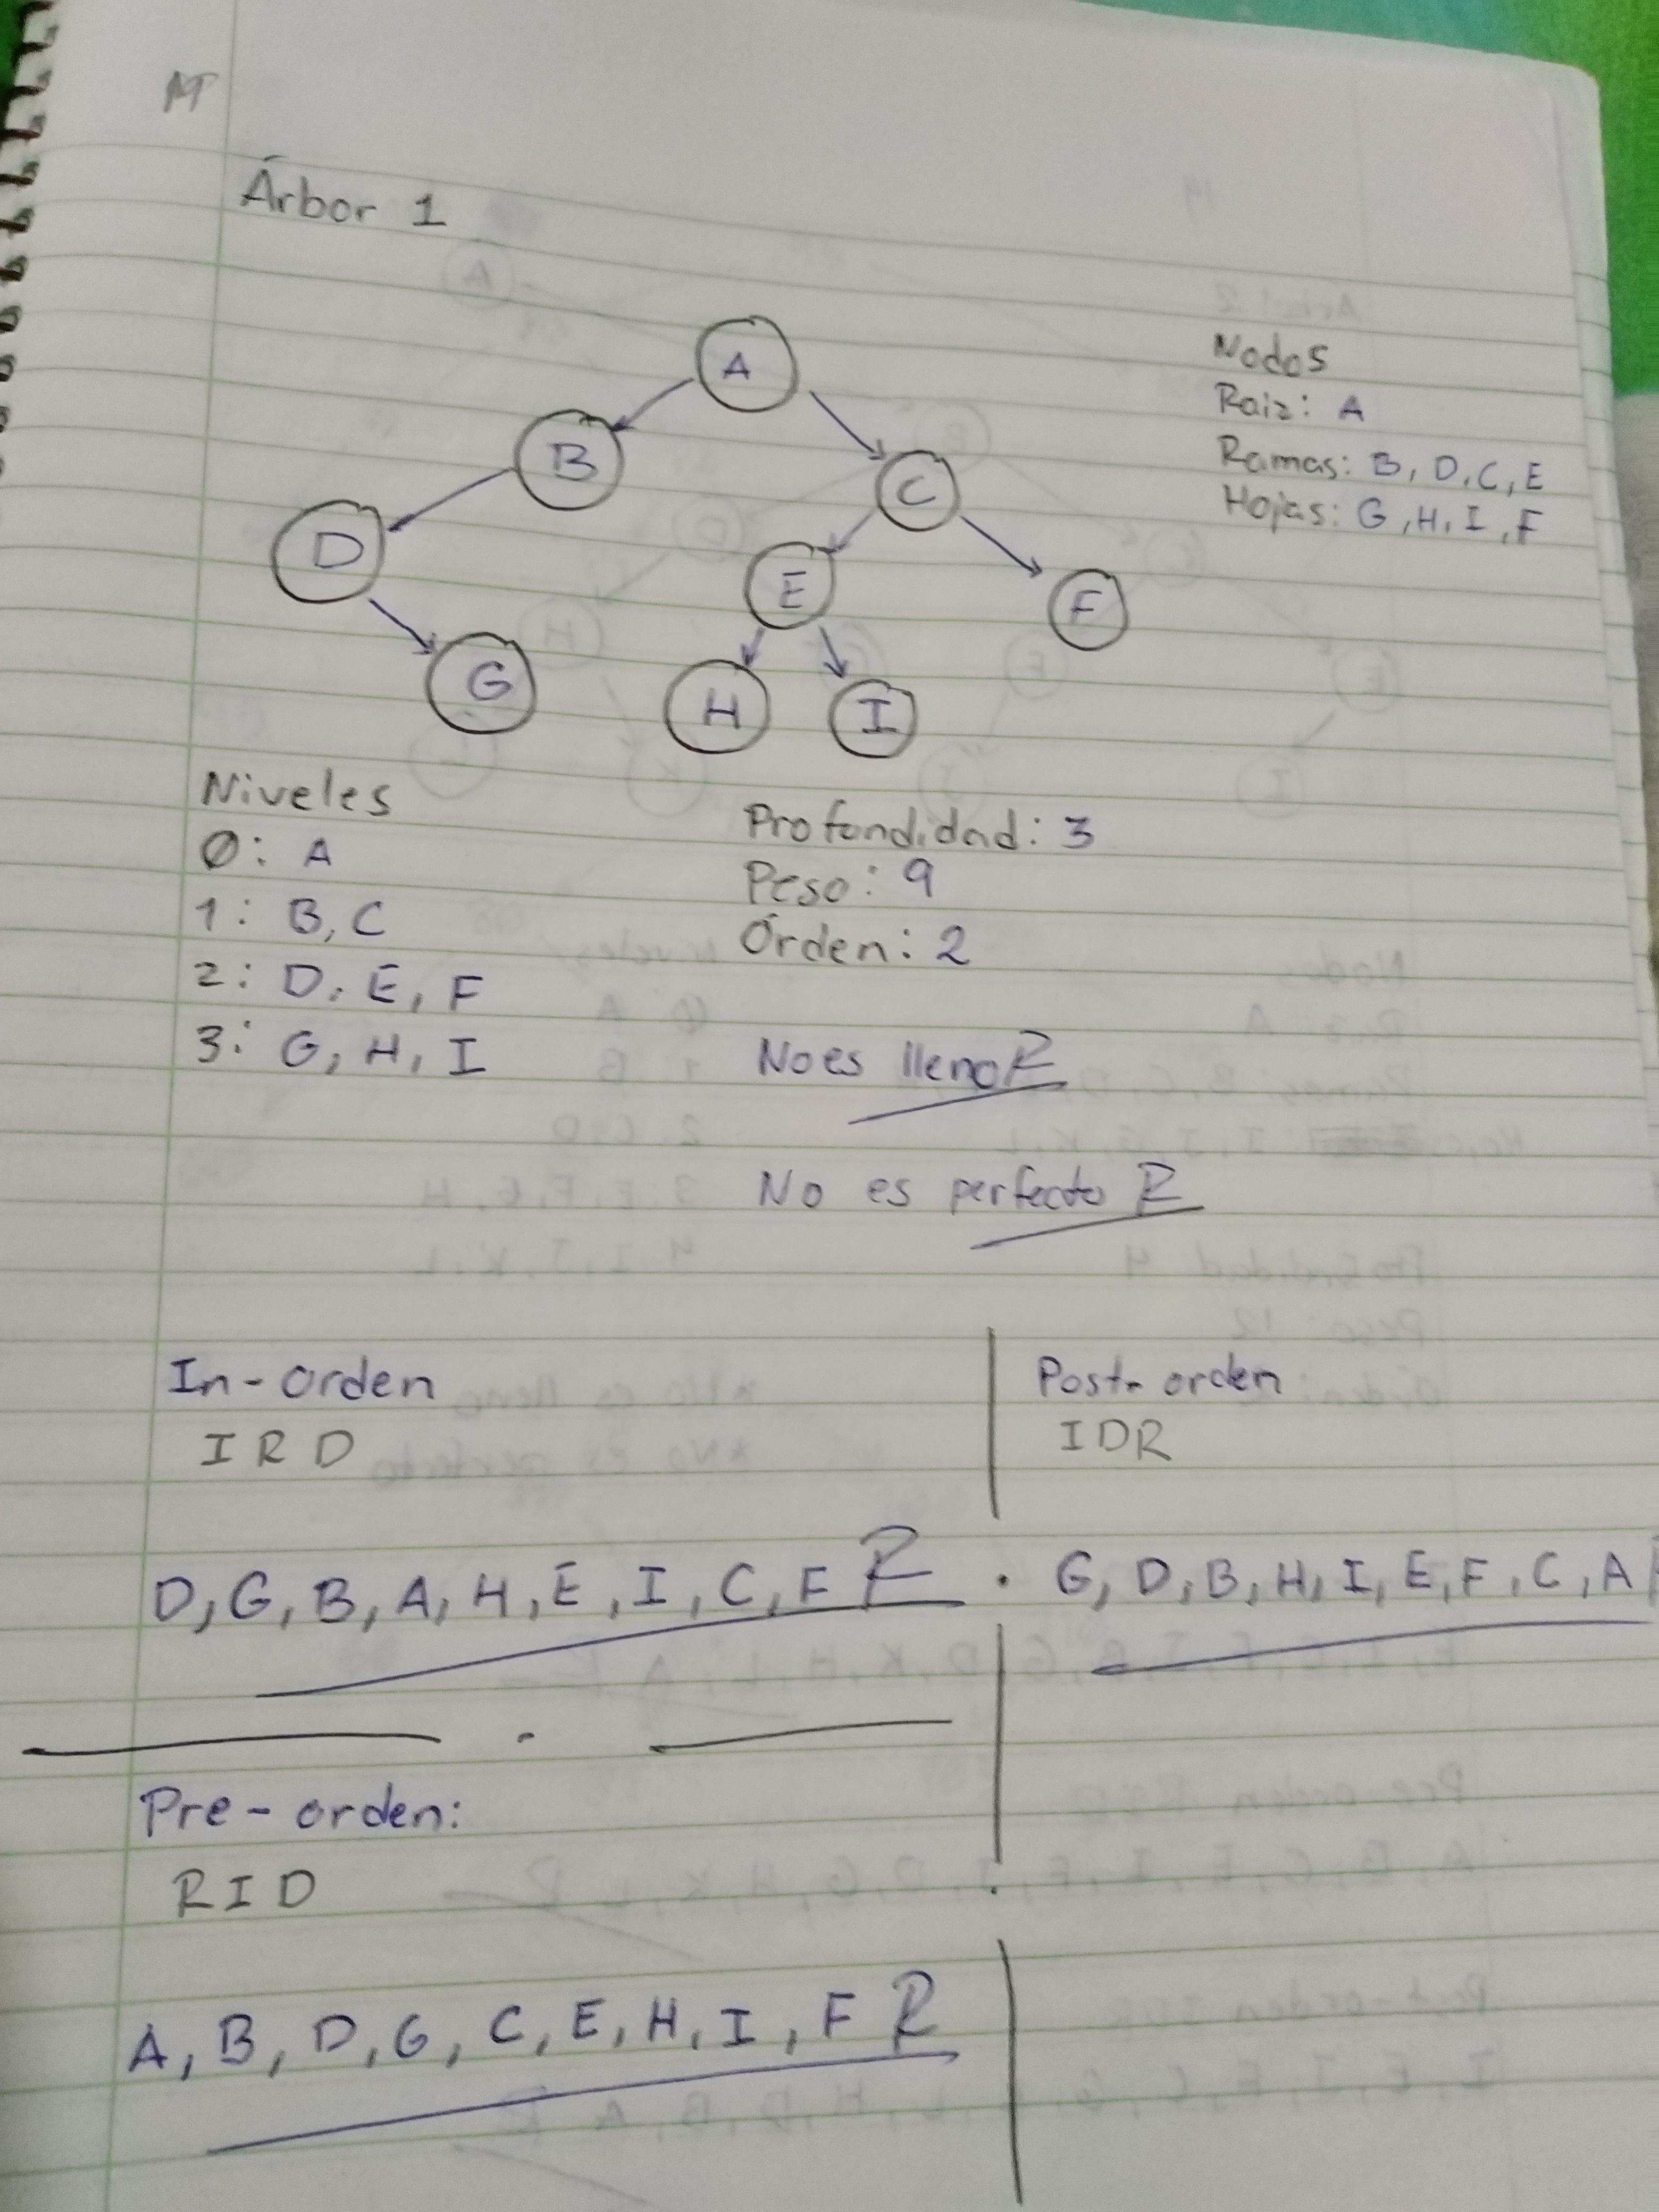 Árbor 1
A
B
C
D
E
F
G
H
I
Nodos
Raiz: A
Ramas: B, D, C, E
Hojas: G, H, I, F
Niveles
0: A
1: B, C
2: D, E, F
3: G, H, I
Profundidad: 3
Peso: 9
Órden: 2
No es lleno R
No es perfecto R
In-orden
I R D
D, G, B, A, H, E, I, C, F R
Post-orden
IDR
G, D, B, H, I, E, F, C, A R
Pre-orden:
R I D
A, B, D, G, C, E, H, I, F R